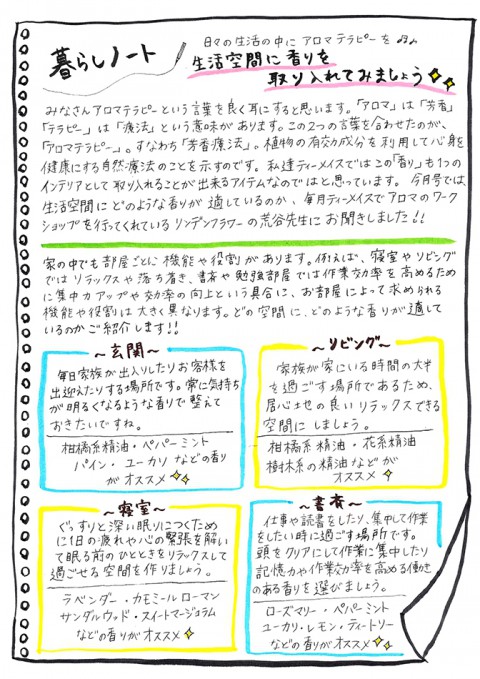 暮らしノート
日々の生活の中に アロマテラピーを
生活空間に香りを
取り入れてみましょう
みなさんアロマテラピーという言葉を良く耳にすると思います。「アロマ」は「芳香」
「テラピー」は「療法」という意味があります。この2つの言葉を合わせたのが、
「アロマテラピー」。すなわち「芳香療法」。植物の有効成分を利用して心身を
健康にする自然療法のことを示すのです。私達ティーメイスではこの「香り」も1つの
インテリアとして取り入れることが出来るアイテムなのではと思っています。今月号では、
生活空間にどのような香りが適しているのか、毎月ティーメイスでアロマのワーク
ショップを行ってくれているリンデンフラワーの荒谷先生にお聞きしました!!
家の中でも部屋ごとに機能や役割があります。例えば、寝室やリビング
ではリラックスや落ち着き、書斎や勉強部屋では作業効率を高めるため
に集中力アップや効率の向上という具合に、お部屋によって求められる
機能や役割は大きく異なります。どの空間に、どのような香りが適して
いるのかご紹介します!!
~玄関~
毎日家族が出入りしたりお客様を
出迎えたりする場所です。常に気持ち
が明るくなるような香りで整えて
おきたいですね。
柑橘系精油・ペパーミント
パイン・ユーカリ などの香り
がオススメ
~リビング~
家族が家にいる時間の大半
を過ごす場所であるため、
居心地の良いリラックスできる
空間にしましょう。
柑橘系精油・花系精油
樹木系の精油などが
オススメ
~寝室~
ぐっすりと深い眠りにつくため
に1日の疲れや心の緊張を解い
て眠る前のひとときをリラックスして
過ごせる空間を作りましょう。
ラベンダー・カモミールローマン
サンダルウッド・スイートマージョラム
などの香りがオススメ
~書斎~
仕事や読書をしたり、集中して作業
をしたい時に過ごす場所です。
頭をクリアにして作業に集中したり
記憶力や作業効率を高める働き
のある香りを選びましょう。
ローズマリー・ペパーミント
ユーカリ・レモン・ティートリー
などの香りがオススメ